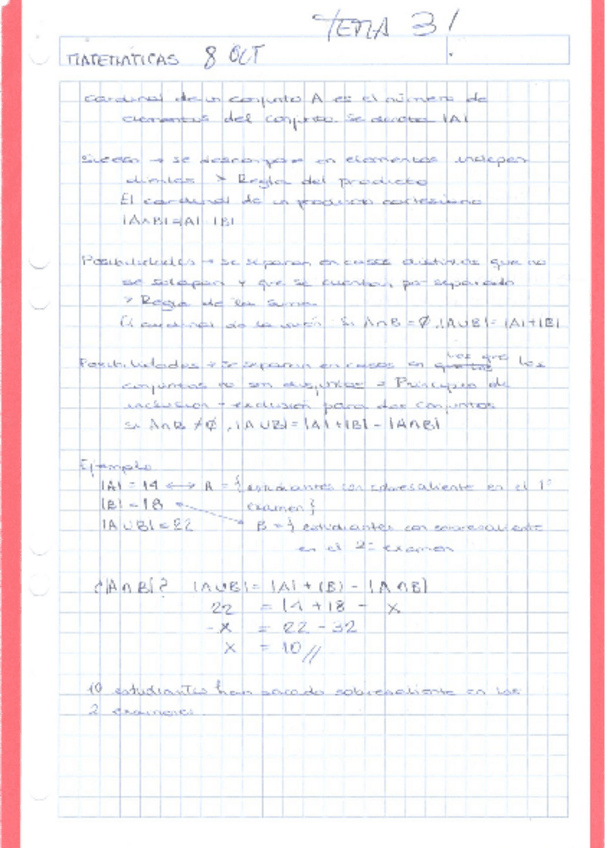 TEMA 3!
MATEMÁTICAS 8 OCT
Cardinal de un conjunto A es el número de
elementos del conjunto. Se denota |A|
Suceso → se descompone en elementos indepen
dientes > Regla del producto
El cardinal de un producto cartesiano
|A×B|=|A|·|B|
Posibilidades → Se separan en casos distintos que no
se solapan y que se cuentan por separado
> Regla de la Suma
El cardinal de la unión. Si A∩B = ∅, |A∪B|= |A|+|B|
Posibilidades → Se separan en casos en los que los
conjuntos no son disjuntos = Principio de
inclusión-exclusión para dos conjuntos
Si A∩B ≠∅, |A∪B|=|A|+|B|-|A∩B|
Ejemplo
|A| = 14 ↔ A = {estudiantes con sobresaliente en el 1º
|B| = 18 examen}
|A∪B| = 22 B = { estudiantes con sobresaliente
en el 2º examen
¿|A∩B|? |A∪B|= |A|+|B|-|A∩B|
22 = 14+18 - x
-x = 22-32
x = 10//
10 estudiantes han sacado sobresaliente en los
2 examenes.